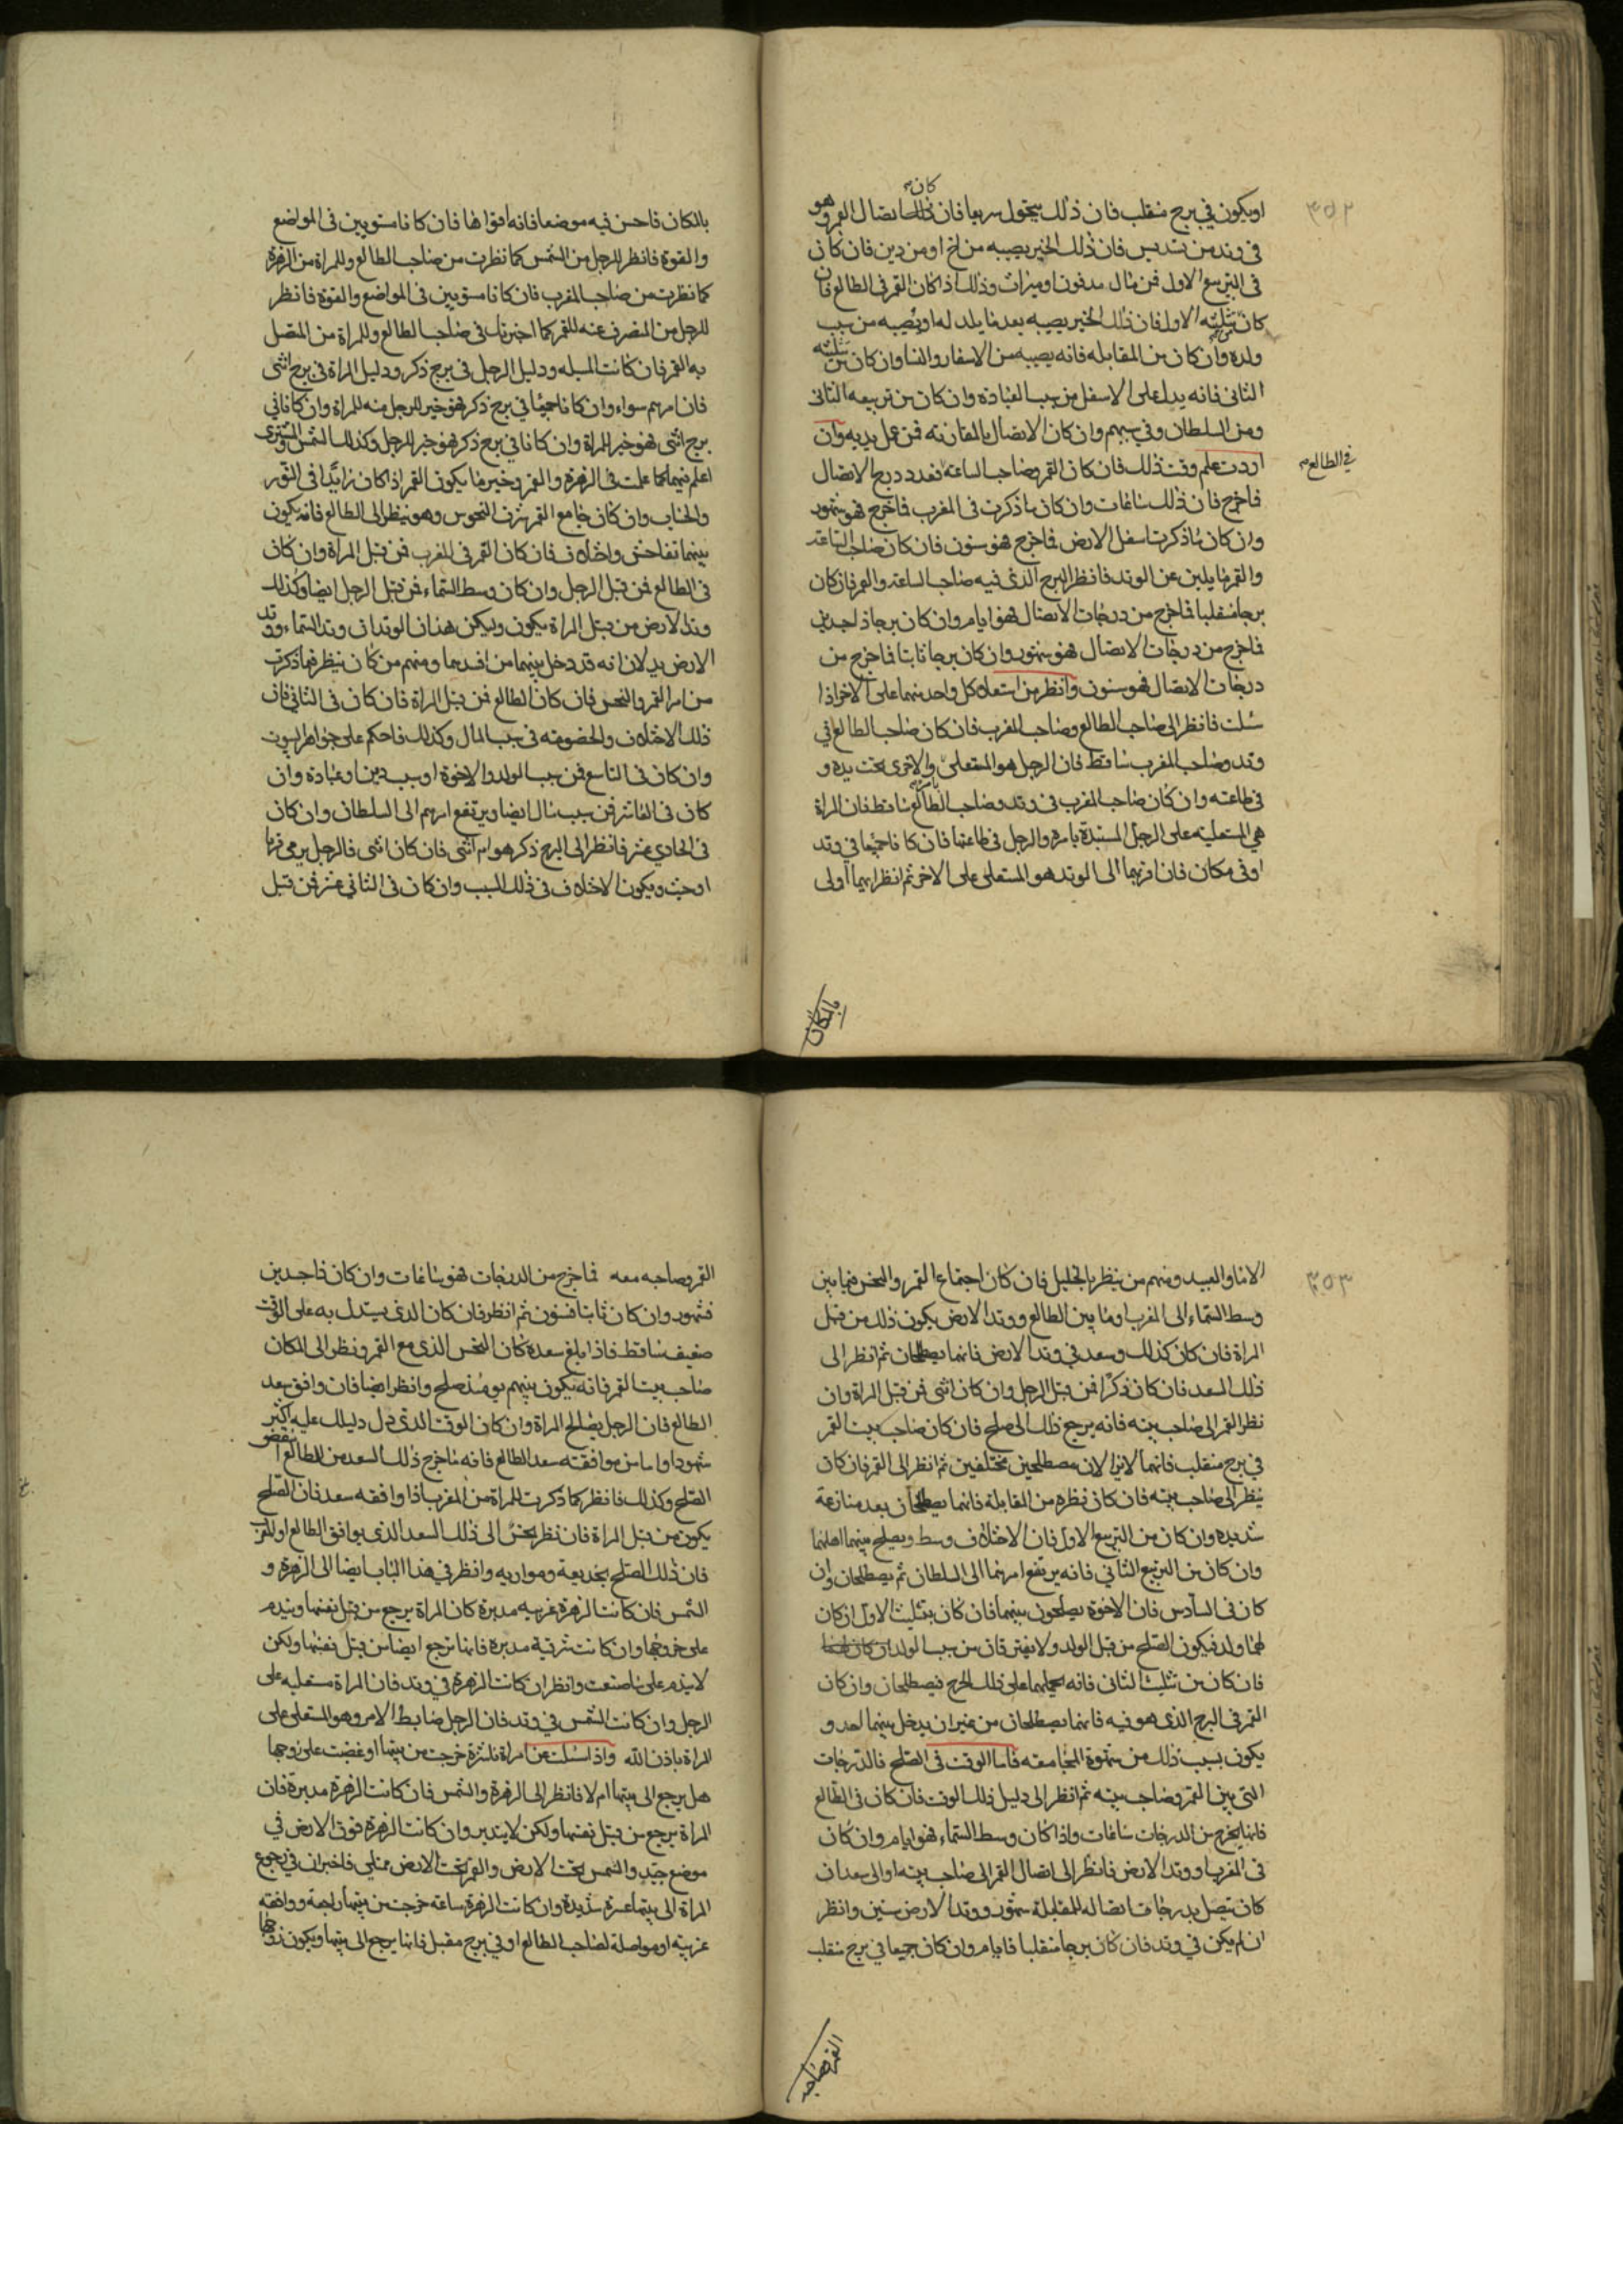 ٣٥٢
او يكون في برج منقلب فان ذلك يتحول سريعا فان كان ذلك اتصال القمر وهو
في وتد من تسديس فان ذلك الخير يصيبه من اخ او من دين فان كان
في التربيع الاول فمن مال مدفون او ميراث وذلك اذا كان القمر في الطالع فان
كان من تثليثه الاول فان ذلك الخير يصيبه بعد ما يلد له او يصيبه من سبب
ولده وان كان من المقابله فانه يصيبه من الاسفار والنسا وان كان من تثليثه
الثاني فانه يدل على الاسفل من سبب العبادة وان كان من تربيعه الثاني
ومن السلطان وفي سببهم وان كان الاتصال بالمقارنه فمن عمل يديه وان
اردت علم وقت ذلك فان كان القمر وصاحب الساعة فعدد درج الاتصال
في الطالع
فاخرج فان ذلك ساعات وان كان ما ذكرت في المغرب فاخرج فهو شهور
وان كان ما ذكرت اسفل الارض فاخرج فهو سنون فان كان صاحب الساعة
والقمر ما يلين عن الوتد فانظر البرج الذي فيه صاحب الساعة والقمر فان كان
برجا منقلبا فاخرج من درجات الاتصال فهو ايام وان كان برجا ذا جسدين
فاخرج من درجات الاتصال فهو شهور وان كان برجا ثابتا فاخرج من
درجات الاتصال فهو سنون وانظر من استعلاء كل واحد منهما على الاخر اذا
سئلت فانظر الى صاحب الطالع وصاحب المغرب فان كان صاحب الطالع في
وتد وصاحب المغرب ساقط فان الرجل هو المستعلي والاخرى تحت يده و
في طاعته وان كان صاحب المغرب في وتد وصاحب الطالع ساقط فان المراة
هي المستعلية على الرجل المستبدة بامره والرجل في طاعتها فان كانا جميعا في وتد
او في مكان فان اقربهما الى الوتد هو المستعلي على الاخر ثم انظر ايهما اولى
بالمكان
بالمكان فاحسن فيه موضعا فانه اقواهما فان كانا مستويين في المواضع
والقوة فانظر للرجل من الشمس كما نظرت من صاحب الطالع وللمراة من الزهرة
كما نظرت من صاحب المغرب فان كانا مستويين في المواضع والقوة فانظر
للرجل من المنصرف عنه القمر كما اخبرتك في صاحب الطالع وللمراة من المتصل
به القمر فان كانت المسله ودليل الرجل في برج ذكر ودليل المراة في برج انثى
فان امرهم سواء وان كانا جميعا في برج ذكر فهو خير للرجل منه للمراة وان كانا في
برج انثى فهو خير للمراة وان كانا في برج ذكر فهو خير للرجل وكذلك الشمس والمشترى
اعلم فيهما كما علمت في الزهرة والقمر وخير ما يكون القمر اذا كان زايدا في النور
والحساب وان كان جامع القمر شرف النحوس وهو ينظر الى الطالع فانه يكون
بينهما تفاحش واختلاف فان كان القمر في المغرب فمن قبل المراة وان كان
في الطالع فمن قبل الرجل وان كان وسط السماء فمن قبل الرجل ايضا وكذلك
وتد الارض من قبل المراة يكون وليكن هذان الوتدان وتد السماء ووتد
الارض يدلان انه قد دخل بينهما من افسدهما ومنهم من كان ينظر فيما ذكرت
من امر القمر والنحس فان كان الطالع فمن قبل المراة فان كان في الثاني فان
ذلك الاختلاف والخصومه في سبب المال وكذلك فاحكم على جواهر البيوت
وان كان في التاسع فمن سبب الولد والاخوة او سبب دين او عبادة وان
كان في العاشر فمن سبب مال ايضا ويرتفع امرهم الى السلطان وان كان
في الحادي عشر فانظر الى البرج ذكر هو ام انثى فان كان انثى فالرجل يرمى بزنا
او خبث ويكون الاختلاف في ذلك السبب وان كان في الثاني عشر فمن قبل
٣٥٣
الاما والعبيد ومنهم من ينظر بالجليل فان كان اجتماع القمر والنحس فيما بين
وسط السماء الى المغرب او ما بين الطالع ووتد الارض يكون ذلك من قبل
المراة فان كان كذلك وسعد في وتد الارض فانهما يصطلحان ثم انظر الى
ذلك السعد فان كان ذكرا فمن قبل الرجل وان كان انثى فمن قبل المراة وان
نظر القمر الى صاحب بيته فانه يرجع ذلك الى صلح فان كان صاحب بيت القمر
في برج منقلب فانهما لايزالان مصطلحين مختلفين ثم انظر الى القمر فان كان
ينظر الى صاحب بيته فان كان نظره من المقابلة فانهما يصطلحان بعد منازعة
شديده وان كان من التربيع الاول فان الاختلاف وسط ويصلح بينهما اهلهما
وان كان من التربيع الثاني فانه يرتفع امرهما الى السلطان ثم يصطلحان وان
كان في السادس فان الاخوة يصلحون بينهما فان كان بتثليث الاول ان كان
لهما ولد فيكون الصلح من قبل الولد ولا يفترقان من سبب الولد
فان كان من تثليث الثاني فانه يحملهما على ذلك الحرج فيصطلحان وان كان
القمر في البرج الذي هو فيه فانهما يصطلحان من غير ان يدخل بينهما احد و
يكون بسبب ذلك من شهوة المجامعه فاما الوقت في الصلح فالدرجات
التي بين القمر وصاحب بيته ثم انظر الى دليل ذلك الوقت فان كان في الطالع
فانما يخرج من الدرجات ساعات واذا كان وسط السماء فهو ايام وان كان
في المغرب او وتد الارض فانظر الى اتصال القمر الى صاحب بيته او الى سعد ان
كان يتصل بدرجات اتصاله للمقابلة شهور ووتد الارض سنين وانظر
ان لم يكن في وتد فان كان برجا منقلبا فايام وان كان جميعا في برج منقلب
القمر وصاحبه
القمر وصاحبه معه فما خرج من الدرجات فهو ساعات وان كان ذا جسدين
فشهور وان كان ثابتا فسنون ثم انظر فان كان الذي يستدل به على الوقت
ضعيف ساقط فاذا بلغ سعده كان النحس الذي مع القمر ونظر الى المكان
صاحب بيت القمر فانه يكون بينهم يومئذ صلح وانظر ايضا فان وافق سعد
الطالع فان الرجل يصالح المراة وان كان الوقت الذي دل دليلك عليه اكثر
شهودا واما من موافقته سعد الطالع فانه ما خرج ذلك السعد من الطالع انتقض
الصلح وكذلك فانظر كما ذكرت للمراة من المغرب اذا وافقه سعد فان الصلح
يكون من قبل المراة فان نظر نحس الى ذلك السعد الذي يوافق الطالع او المغرب
فان ذلك الصلح بخديعة ومواربه وانظر في هذا الباب ايضا الى الزهرة و
الشمس فان كانت الزهرة غربيه مدبرة كان المراة يرجع من قبل نفسها ويندم
على خروجها وان كانت شرقية مدبره فانها ترجع ايضا من قبل نفسها ولكن
لايندم على ما صنعت وانظر ان كانت الزهرة في وتد فان المراة مستعليه على
الرجل وان كانت الشمس في وتد فان الرجل ضابط الامر وهو المستعلى على
المراة باذن الله واذا سئلت عن امراة ناشزة خرجت من بيتها او غضبت على زوجها
هل يرجع الى بيتها ام لا فانظر الى الزهرة والشمس فان كانت الزهرة مدبرة فان
المراة يرجع من قبل نفسها ولكن لايتدبر وان كانت الزهرة فوق الارض في
موضع جيد والشمس تحت الارض والقمر تحت الارض ممتلى فاخبر ان في رجوع
المراة الى بيتها عسرة شديدة وان كانت الزهرة ساعه خرجت من بيتها راجعة ووافقه
غربيه او مواصلة لصاحب الطالع او في برج مقبل فانها يرجع الى بيتها ويكون زوجها